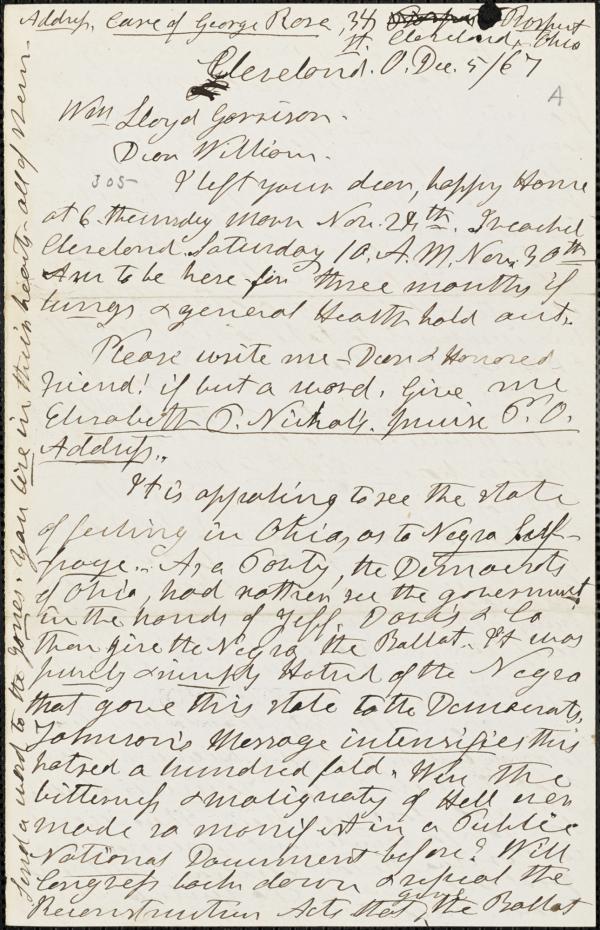 Address, Care of George Rose, 34
Prospect
St. Cleveland, Ohio
Cleveland. O. Dec. 5/67
A
Wm Lloyd Garrison.
Dear William.
305
I left your dear, happy Home
at 6 Thursday morn Nov. 28th. I reached
Cleveland Saturday 10. A.M. Nov. 30th
Am to be here for three months if
lungs & general Health hold out.
Please write me – Dear & Honored
friend! if but a word. Give me
Elizabeth P. Nichol's. P.O.
Address.
It is appaling to see the state
of feeling in Ohio, as to Negro Suf-
frage. As a Party, the Democrats
of Ohio, had rather see the government
in the hands of Jeff. Davis & Co
than give the Negro the Ballot. It was
purely & simply Hatred of the Negro
that gave this state to the Democrats.
Johnson's Message intensifies this
hatred a hundred fold. Were the
bitterness & malignaty of Hell ever
made so manifest in a Public
National Document before? Will
Congress back down & repeal the
Reconstruction Acts that gave the Ballot
Send a word to the Joneses. You live in their hearts – all of them.